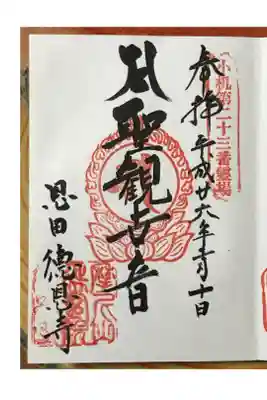 小机第二十三番霊場
奉拝 平成廿六年十月十日
聖観世音
恩田 徳恩寺